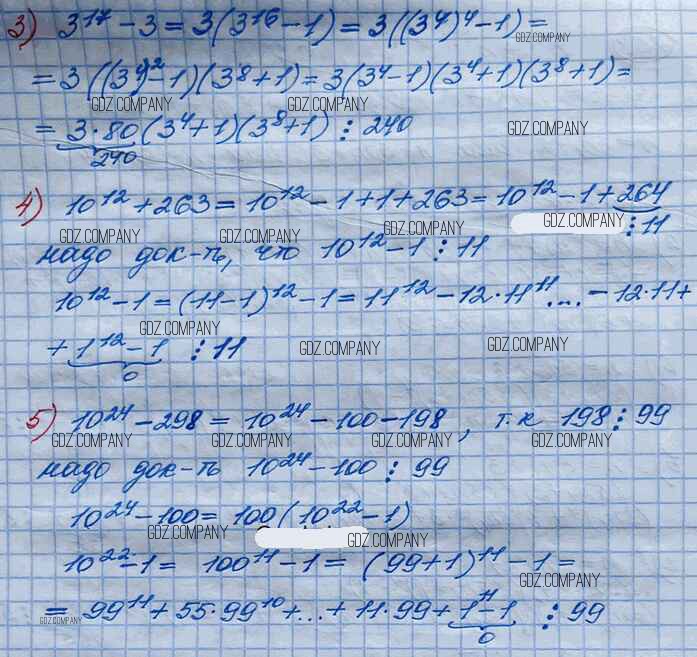 3) 3¹⁷ - 3 = 3(3¹⁶ - 1) = 3((3⁴)⁴ - 1) =
GDZ.COMPANY
= 3((3⁴)² - 1)(3⁸ + 1) = 3(3⁴ - 1)(3⁴ + 1)(3⁸ + 1) =
GDZ.COMPANY GDZ.COMPANY
= 3·80(3⁴ + 1)(3⁸ + 1) ⋮ 240 GDZ.COMPANY
240
4) 10¹² + 263 = 10¹² - 1 + 1 + 263 = 10¹² - 1 + 264
GDZ.COMPANY GDZ.COMPANY GDZ.COMPANY GDZ.COMPANY ⋮ 11
надо док-ть, что 10¹² - 1 ⋮ 11
10¹² - 1 = (11 - 1)¹² - 1 = 11¹² - 12·11¹¹ ... - 12·11 +
GDZ.COMPANY
+ 1¹² - 1 ⋮ 11 GDZ.COMPANY GDZ.COMPANY
0
5) 10²⁴ - 298 = 10²⁴ - 100 - 198, т.к 198 ⋮ 99
GDZ.COMPANY GDZ.COMPANY GDZ.COMPANY GDZ.COMPANY
надо док-ть 10²⁴ - 100 ⋮ 99
10²⁴ - 100 = 100(10²² - 1)
GDZ.COMPANY GDZ.COMPANY
10²² - 1 = 100¹¹ - 1 = (99 + 1)¹¹ - 1 =
GDZ.COMPANY
= 99¹¹ + 55·99¹⁰ + ... + 11·99 + 1¹¹ - 1 ⋮ 99
GDZ.COMPANY 0